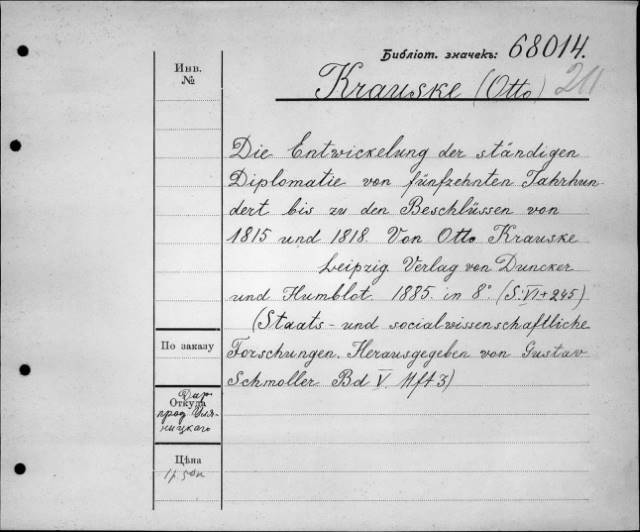 Библіот. значекъ: 68014.
Инв.
№
Krauske (Otto) 211
Die Entwickelung der ständigen
Diplomatie von fünfzehnten Jahrhun
dert bis zu den Beschlüssen von
1815 und 1818. Von Otto Krauske
Leipzig. Verlag von Duncker
und Humblot. 1885. in 8° (S. VI + 245)
(Staats- und socialwissenschaftliche
Forschungen. Herausgegeben von Gustav
Schmoller Bd V. Hft 3)
По заказу
Дар
Откуда
проф Уля-
ницкаго
Цѣна
1р 50к